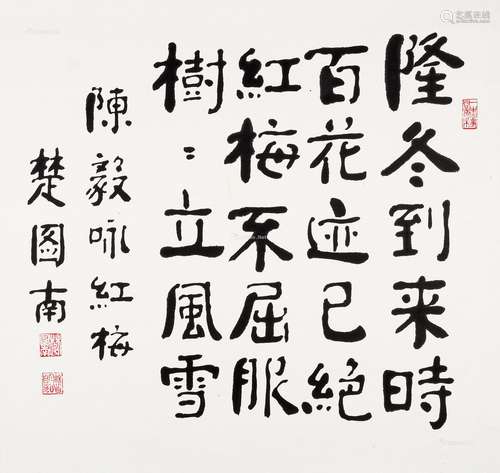 隆冬到来時
百花迹已絕
紅梅不屈服
樹〻立風雪
陳毅咏紅梅
楚圖南